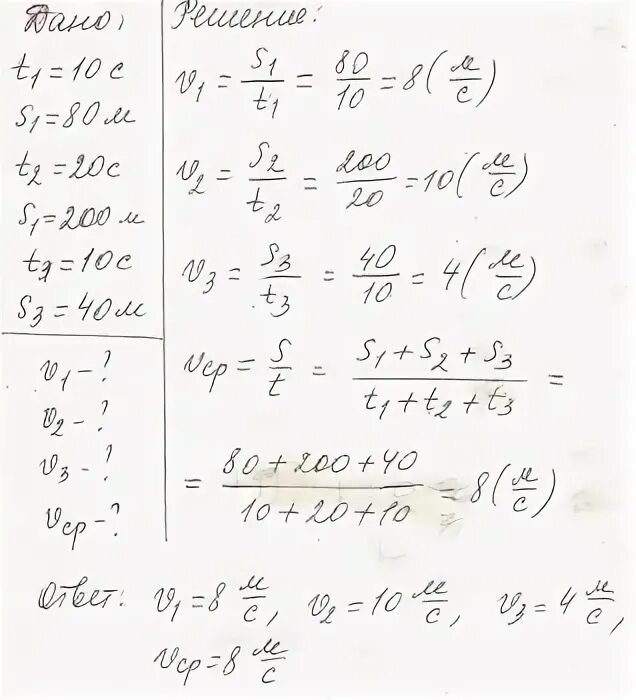 Дано,
t1 = 10 с
S1 = 80 м
t2 = 20 с
S1 = 200 м
t3 = 10 с
S3 = 40 м
v1 - ?
v2 - ?
v3 - ?
vср - ?
Решение:
v1 = S1/t1 = 80/10 = 8 (м/с)
v2 = S2/t2 = 200/20 = 10 (м/с)
v3 = S3/t3 = 40/10 = 4 (м/с)
vср = S/t = (S1 + S2 + S3)/(t1 + t2 + t3) =
= (80 + 200 + 40)/(10 + 20 + 10) = 8 (м/с)
Ответ: v1 = 8 м/с, v2 = 10 м/с, v3 = 4 м/с,
vср = 8 м/с